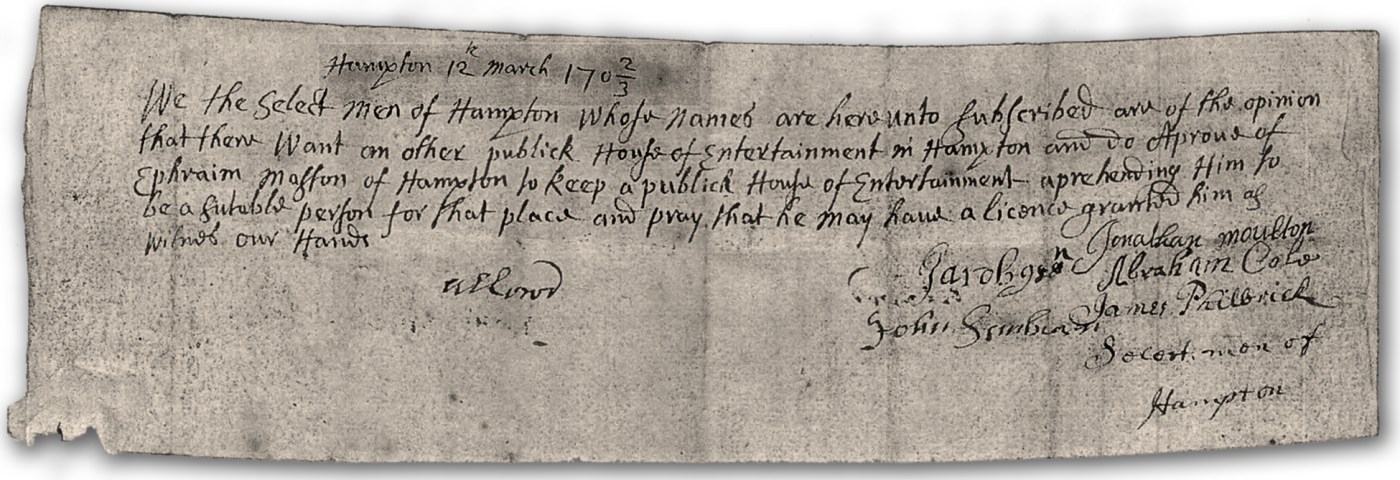 Hampton 12th march 170 2/3
We the Select men of Hampton Whose Names are here unto Subscribed are of the opinion
that there Want an other publick House of Entertainment in Hampton and do Aprove of
Ephraim Maston of Hampton to keep a publick House of Entertainment aprehending Him to
be a Sutable person for that place and pray that he may have a licence granted him as
witnes our Hands
Jonathan moulton
Jacob green Abraham Cole
alowd
James Philbrick
John
Select men of
Hampton